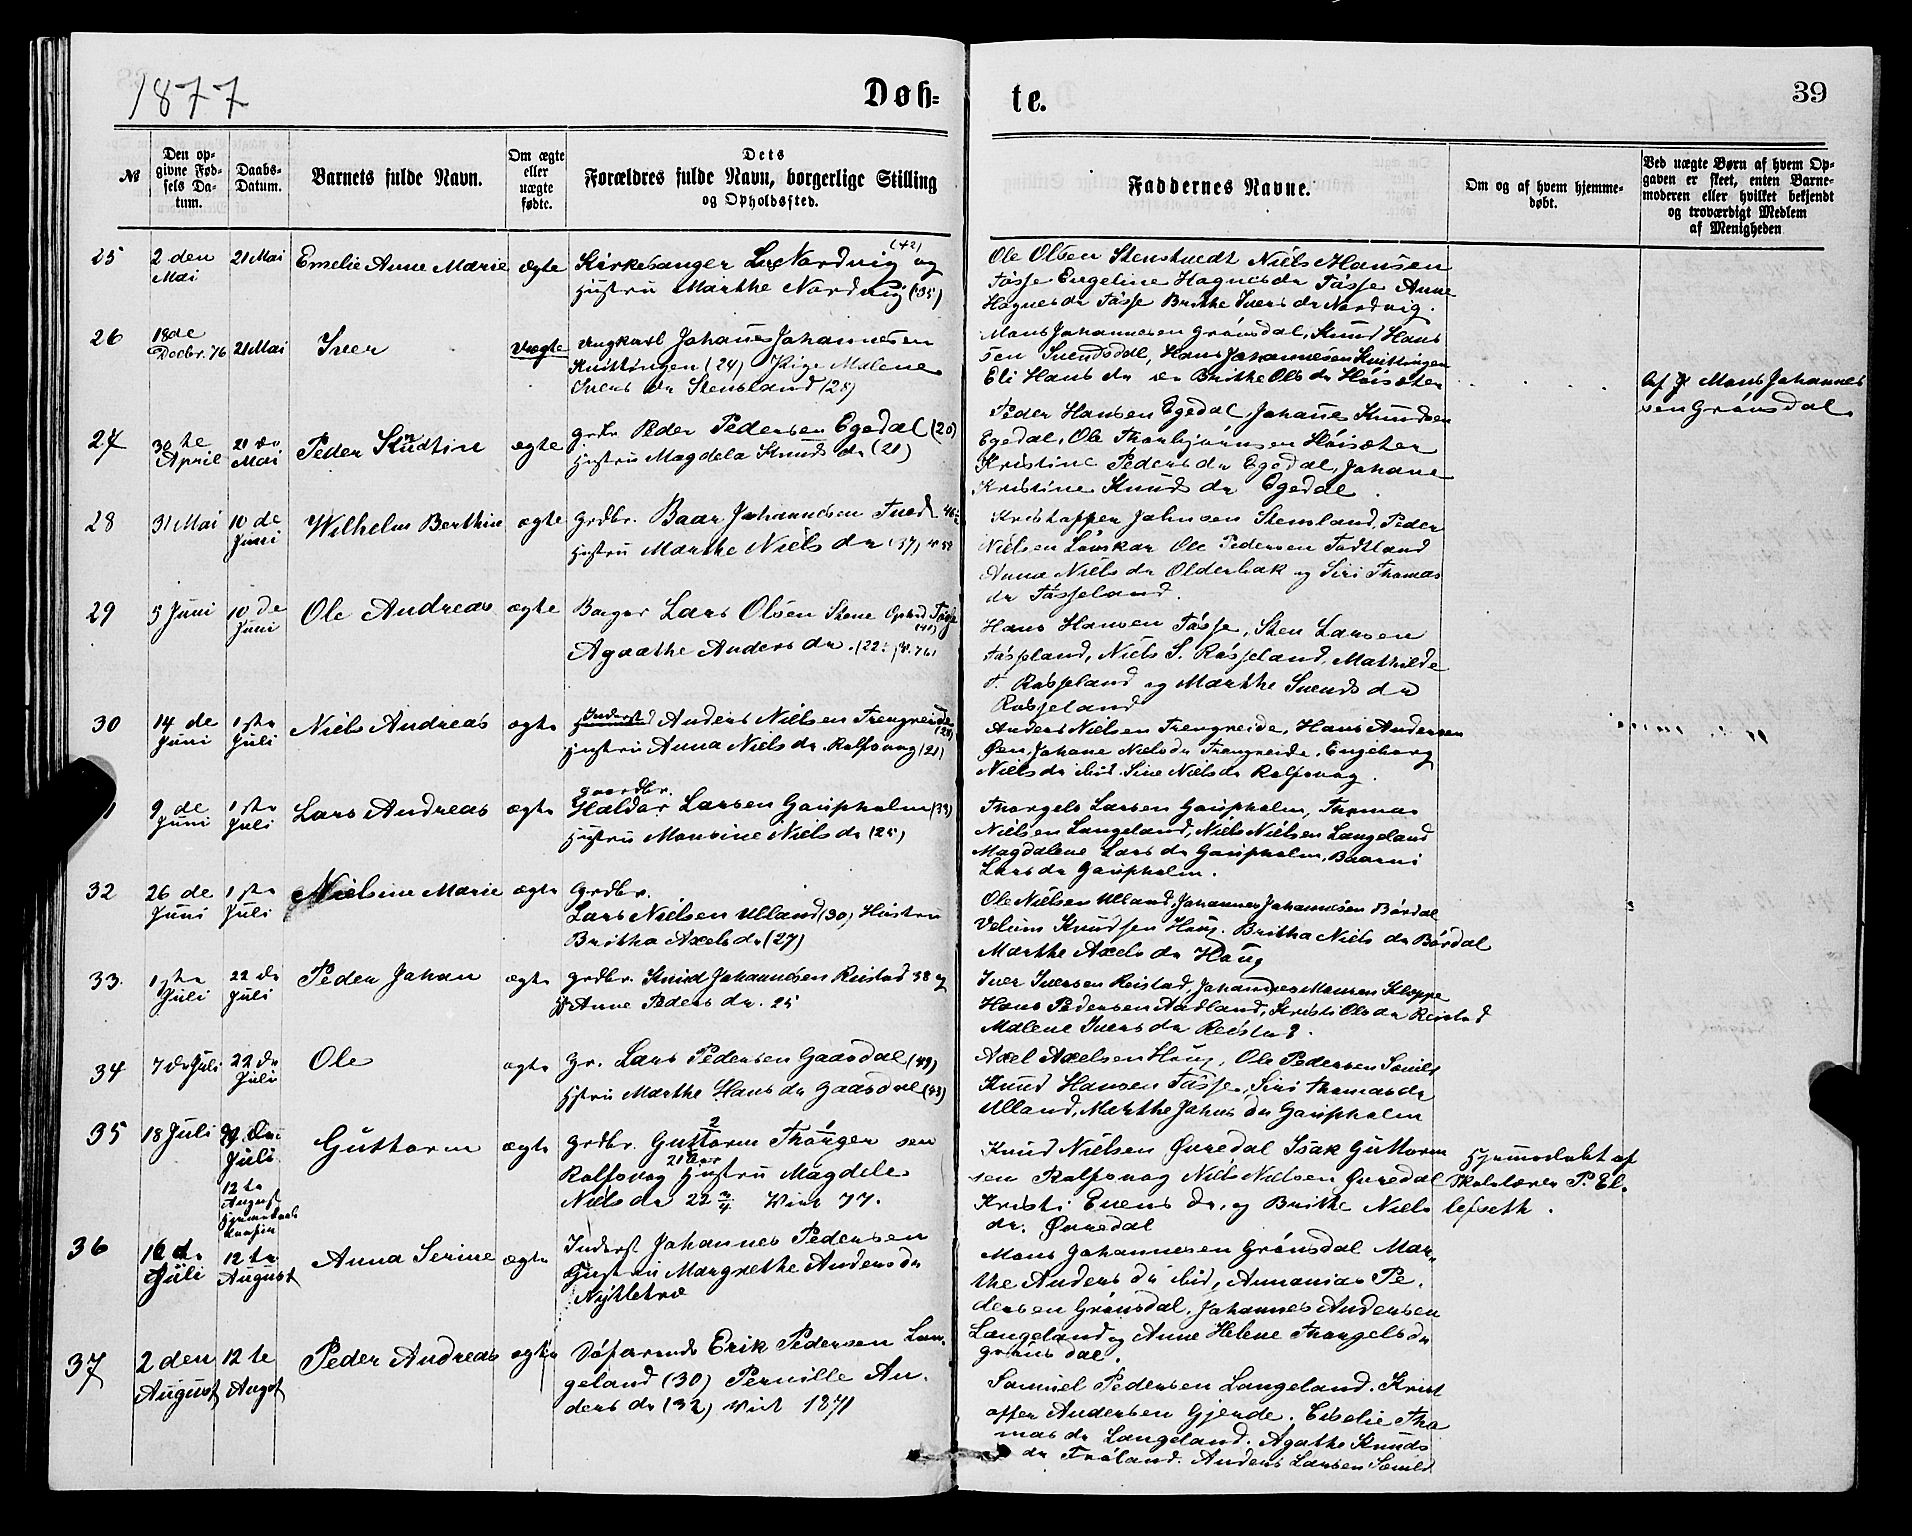 1877
Døb-
te.
39
№
Den op-
givne Fød-
sels Da-
tum.
Daabs-
Datum.
Barnets fulde Navn.
Om ægte
eller
uægte
fødte.
Dets
Forældres fulde Navn, borgerlige Stilling
og Opholdssted.
Faddernes Navne.
Om og af hvem hjemme-
døbt.
Ved uægte Børn af hvem Op-
gaven er skeet, enten Barne-
moderen eller hvilket bekjendt
og troværdigt Medlem
af Menigheden
25
2 den
Mai
21 Mai
Emelie Anne Marie
ægte
Kirkesanger L. Nordvig og
(42)
Hustru Marthe Nordvig (35)
Ole Olsen Stenstvedt Niels Hansen
Tøsse Engeline Hagnesdr Tøsse Anne
Hagnesdr Tøsse Brithe Iversdr Nordvig.
26
18de
Decbr. 76
21 Mai
Iver
uægte
Ungkarl Johanes Johannesen
Kvittingen (24) Pige Malene
Svens dr Stensland (28)
Mons Johannesen Grønsdal, Knud Hans
sen Svendsdal, Hans Johannesen Kvittingen
Eli Hans dr Brithe Ols dr Høisæter
Af Mons Johannes
sen Grønsdal
27
30 te
April
21 de
Mai
Peder Knudtin
ægte
grdbr Peder Pedersen Egedal (20)
Hustru Magdela Knuds dr (21)
Peder Hansen Egedal, Johane Knudsen
Egedal, Ole Thorbjørnsen Høisæter
Kristine Peders dr Egedal, Johane
Kristine Knuds dr Egedal.
28
31 Mai
10 de
Juni
Wilhelm Berthin
ægte
Grdbr. Baar Johannesen Tued 46
Hustru Marthe Niels dr (37)
Kristoffer Johnsen Stensland, Peder
Nielsen Lønskar Ole Pedersen Tødtland
Anna Niels dr Olderbak og Siri Thomas
dr Tøsseland.
29
5 Juni
10 de
Juni
Ole Andreas
ægte
Borger Lars Olsen Stene Ophold Tøsse
Agaathe Anders dr. (22)
Hans Hansen Tøsse, Sten Larsen
Tøsseland, Niels S. Røsseland, Mathilde
T. Røsseland og Marthe Svends dr
Røsseland
30
14 de
Juni
1ste
Juli
Niels Andreas
ægte
Inderst Anders Nielsen Trengreide
(28)
Hustru Anna Niels dr Rolfsvag (21)
Anders Nielsen Trengreide, Hans Andersen
Øen, Johane Niels dr Trengreide, Engeborg
Niels dr ibid. Sine Niels dr Rolfsvag.
1
9 de
Juni
1ste
Juli
Lars Andreas
ægte
gaardbr.
Haldor Larsen Gaupholm (33)
Hustru Monsine Niels dr (25)
Thorgels Larsen Gaupholm, Thomas
Nielsen Langeland, Niels Nielsen Langeland
Magdalene Lars dr Gaupholm, Baarni
Lars dr Gaupholm.
32
26 de
Juni
1ste
Juli
Nielsine Marie
ægte
Grdbr.
Lars Nielsen Ulland (30) Hustru
Britha Axels dr (27)
Ole Nielsen Ulland, Johannes Johannesen Børdal
Velum Knudsen Haug. Britha Niels dr Børdal
Marthe Axels dr Haug
33.
1ste
Juli
22 de
Juli
Peder Johan
ægte
grdbr. Knud Johannesen Reistad 38 og
H Anne Peders dr. 25
Iver Iversen Reistad, Johannes Monsen Kloppe
Hans Pedersen Aadland, Kristi Ols dr Reistad
Malene Ivers dr Reistad.
34
7 de Juli
22 de
Juli
Ole
ægte
Gr. Lars Pedersen Gaasdal (49)
Hstru Marthe Hans dr Gaasdal (43)
Axel Axelsen Haug, Ole Pedersen Sævild
Knud Hansen Tøsse, Siri Thomas dr
Ulland, Marthe Johns dr Gaupholm
35
18 Juli
Juli
12 te
August
Guttorm
ægte
2 1
Grdbr. Guttorm Thorger sen
21 Aar
Rolfsvog Hustru Magdele
Niels dr 22 3/4 Viet 77.
Knud Nielsen Øvredal Isak Guttorm
sen Rolfsvog Niels Nielsen Øvredal
Kristi Evens dr, og Brithe Niels
dr. Øvredal
Hjemmedøbt af
Skolelærer P. El-
lefseth.
36
16 de
Juli
12 te
August
Anna Serine
ægte
Inderst Johannes Pedersen
Hustru Margrethe Anders dr
Nyttetræ
Mons Johannesen Grønsdal Mar-
the Anders dr ibid, Annanias Pe-
dersen Grønsdal, Johannes Andersen
Langeland og Anne Helene Thorgels dr
grønsdal.
37
2 den
August
12 te
Augst
Peder Andreas
ægte
Søfarende Erik Pedersen Lan-
geland (30) Pernille An-
ders dr (32) Viet 1871
Samuel Pedersen Langeland. Krist
offer Andersen Gjerde. Eiselie Tho
mas dr Langeland. Agathe Knuds
dr Frøland. Anders Larsen Sævild